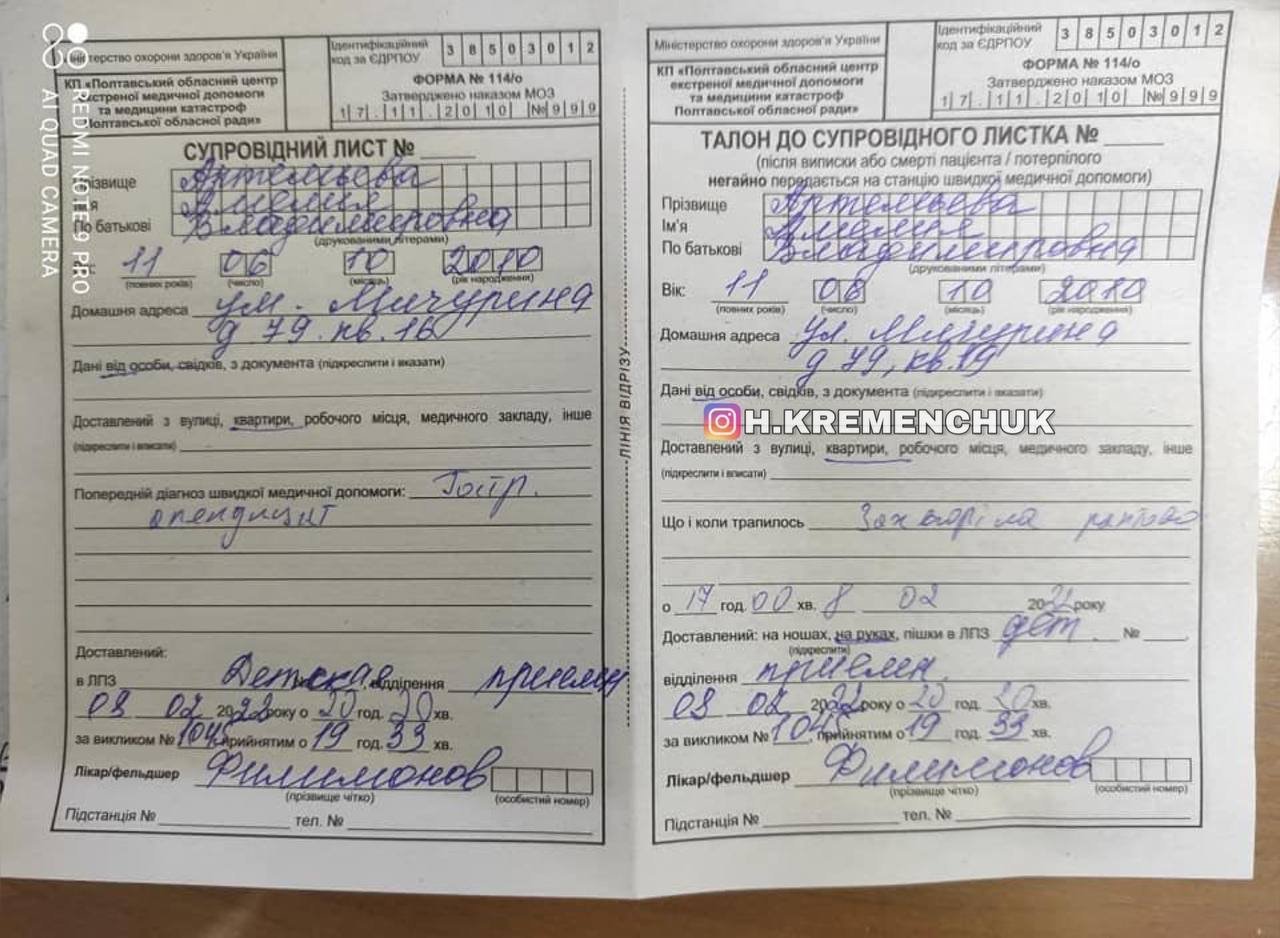 REDMI NOTE 9 PRO
AI QUAD CAMERA
Міністерство охорони здоров'я України
КП «Полтавський обласний центр
екстреної медичної допомоги
та медицини катастроф
Полтавської обласної ради»
Ідентифікаційний
код за ЄДРПОУ
3 8 5 0 3 0 1 2
ФОРМА № 114/о
Затверджено наказом МОЗ
17.11.2010 №999
СУПРОВІДНИЙ ЛИСТ №
Прізвище Артемьева
Ім'я Амелия
По батькові Владимировна
(друкованими літерами)
11 06 10 2010
(повних років) (число) (місяць) (рік народження)
Домашня адреса ул. Мичурина
д 79. кв. 16
Дані від особи, свідків, з документа (підкреслити і вказати)
Доставлений з вулиці, квартири, робочого місця, медичного закладу, інше
(підкреслити і вписати)
Попередній діагноз швидкої медичної допомоги: Гостр.
апендицит
Доставлений:
в ЛПЗ Детская, відділення приемн
08 02 2022 року о 20 год. 20 хв.
за викликом № 1045, прийнятим о 19 год. 33 хв.
Лікар/фельдшер Филимонов
(прізвище чітко) (особистий номер)
Підстанція № тел. №
ЛІНІЯ ВІДРІЗУ
Міністерство охорони здоров'я України
КП «Полтавський обласний центр
екстреної медичної допомоги
та медицини катастроф
Полтавської обласної ради»
Ідентифікаційний
код за ЄДРПОУ
3 8 5 0 3 0 1 2
ФОРМА № 114/о
Затверджено наказом МОЗ
17.11.2010 №999
ТАЛОН ДО СУПРОВІДНОГО ЛИСТКА №
(після виписки або смерті пацієнта / потерпілого
негайно передається на станцію швидкої медичної допомоги)
Прізвище Артемьева
Ім'я Амелия
По батькові Владимировна
(друкованими літерами)
Вік: 11 06 10 2010
(повних років) (число) (місяць) (рік народження)
Домашня адреса ул. Мичурина
д 79, кв.
Дані від особи, свідків, з документа (підкреслити і вказати)
H.KREMENCHUK
Доставлений з вулиці, квартири, робочого місця, медичного закладу, інше
(підкреслити і вписати)
Що і коли трапилось Захворіла раптово
о 17 год. 00 хв. 8 02 20 року
Доставлений: на ношах, на руках, пішки в ЛПЗ дет. №
(підкреслити)
відділення приемн.
08 02 2022 року о 20 год. 20 хв.
за викликом № 1045, прийнятим о 19 год. 33 хв.
Лікар/фельдшер Филимонов
(прізвище чітко) (особистий номер)
Підстанція № тел. №